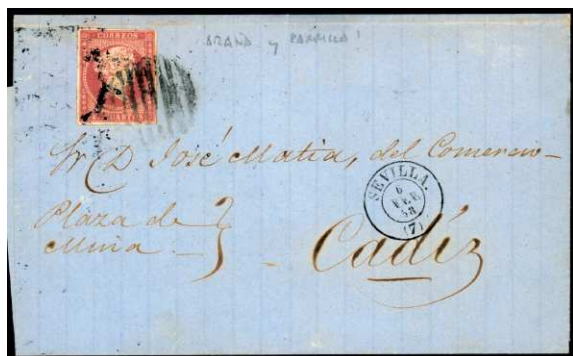 CORREOS
ARAÑA y PARRILLA!
Sr. D. José Matia, del Comercio
Plaza de
Mina
Cadiz
SEVILLA.
6
FEB.
58
(7)